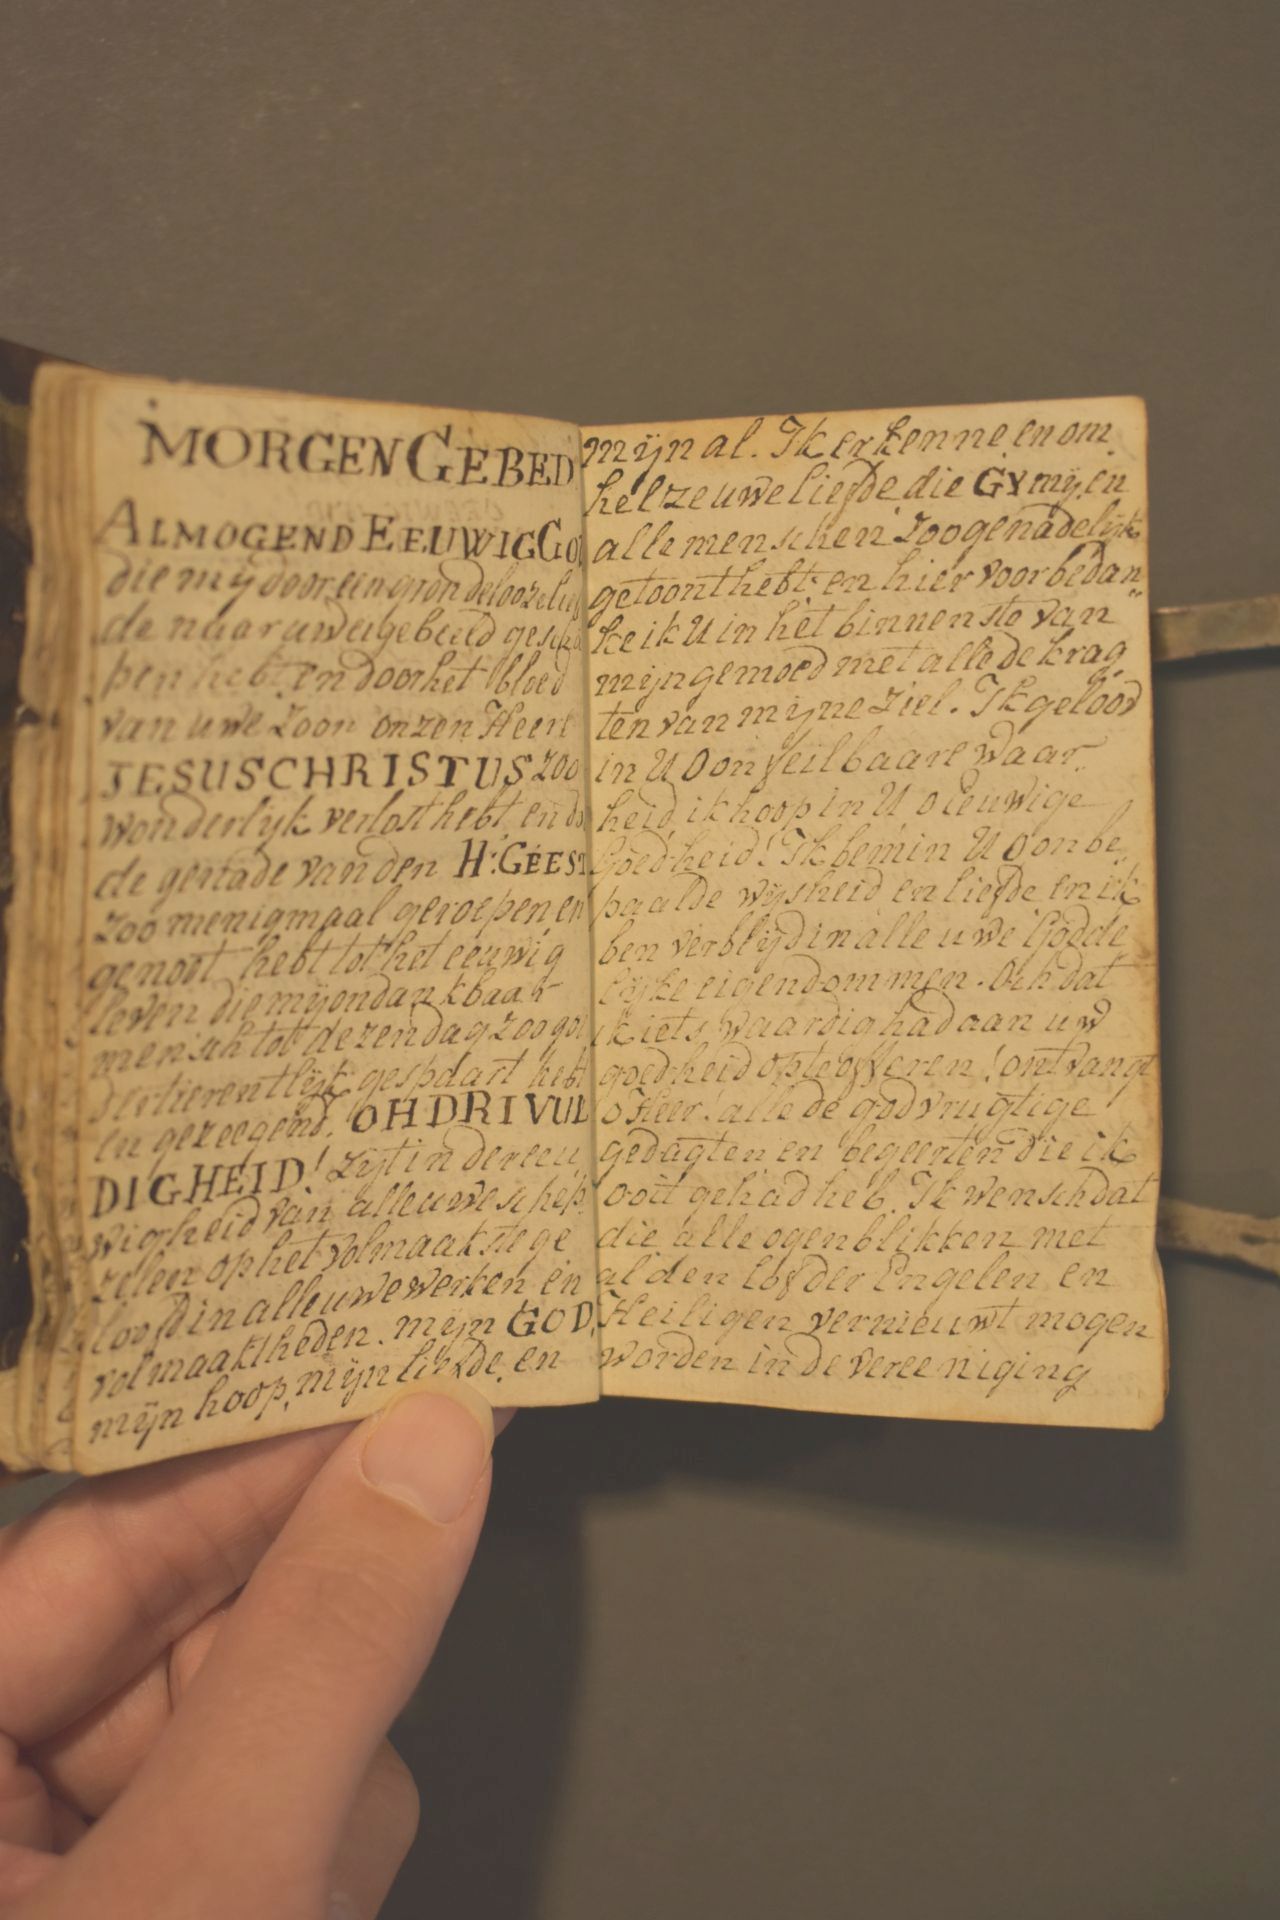 MORGEN GEBED
ALMOGEND EEUWIG GO
die mij door een grondelooze lief
de naar uw evegebeeld gescha
pen hebt en door het bloed
van uwe Zoon onzen Heere
JESUS CHRISTUS zoo
wonderlijk verlost hebt en do
de genade van den H: GEEST
zoo menigmaal geroepen en
genoot hebt tot het eeuwig
leven die mij ondankbaar
mensch tot dezen dag zoo goe
dertierentlijk gespaart hebt
en gezeegend. OH DRIVUL
DIGHEID! zijt in der eeu
wigheid van alle uwe schep
zelen op het volmaakste ge
looft in alle uwe werken en
volmaaktheden. mijn GOD,
mijn hoop, mijn liefde, en
mijn al. Ik erkenne en om
helze uwe liefde die GY mij en
alle menschen zoo genadelijk
getoont hebt en hier voor bedan"
ke ik U in het binnenste van
mijn gemoed met alle de krag
ten van mijne ziel. Ik geloov
in U O onfeilbaare waar
heid, ik hoop in U o eeuwige
Goedheid! Ik bemin U O onbe,,
paalde wijsheid en liefde en ik
ben verblijd in alle uwe Godde
lijke eigendommen. Och dat
ik iets waardig had aan uw
goedheid op te offeren! ontvangt
o Heer! alle de godvrugtige
gedagten en begeerten die ik
ooit gehad heb. Ik wensch dat
die alle ogenblikken met
al den lof der Engelen en
Heiligen vernieuwt mogen
worden in de vereeniging